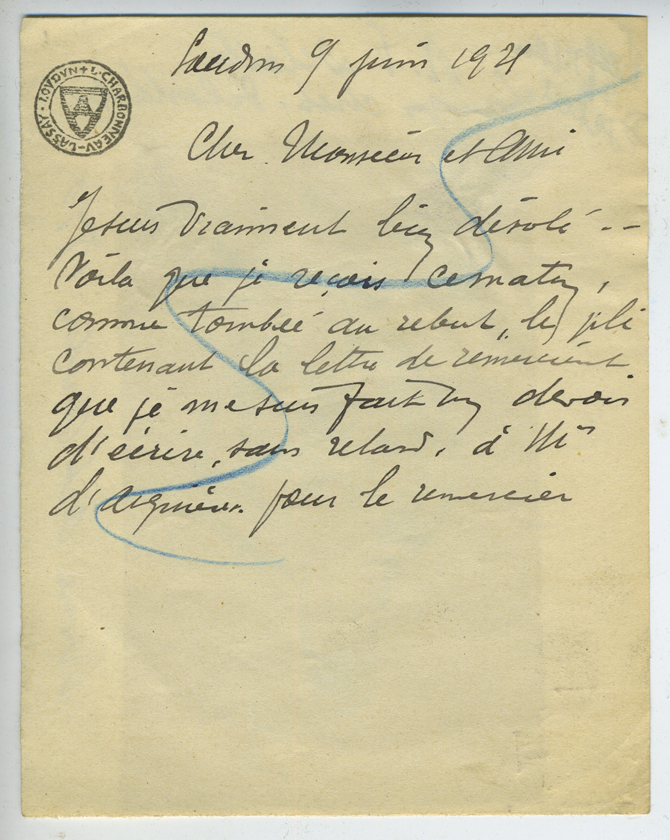 LOUDUN + L·CHARBONNEAU-LASSAY·
Loudun 9 juin 1921
Cher Monsieur et Ami
Je suis vraiment bien désolé --
Voilà que je reçois ce matin,
comme tombée au rebut, le pli
contenant la lettre de remerciement
que je me suis fait un devoir
d'écrire, sans retard, à Mr
d' pour le remercier